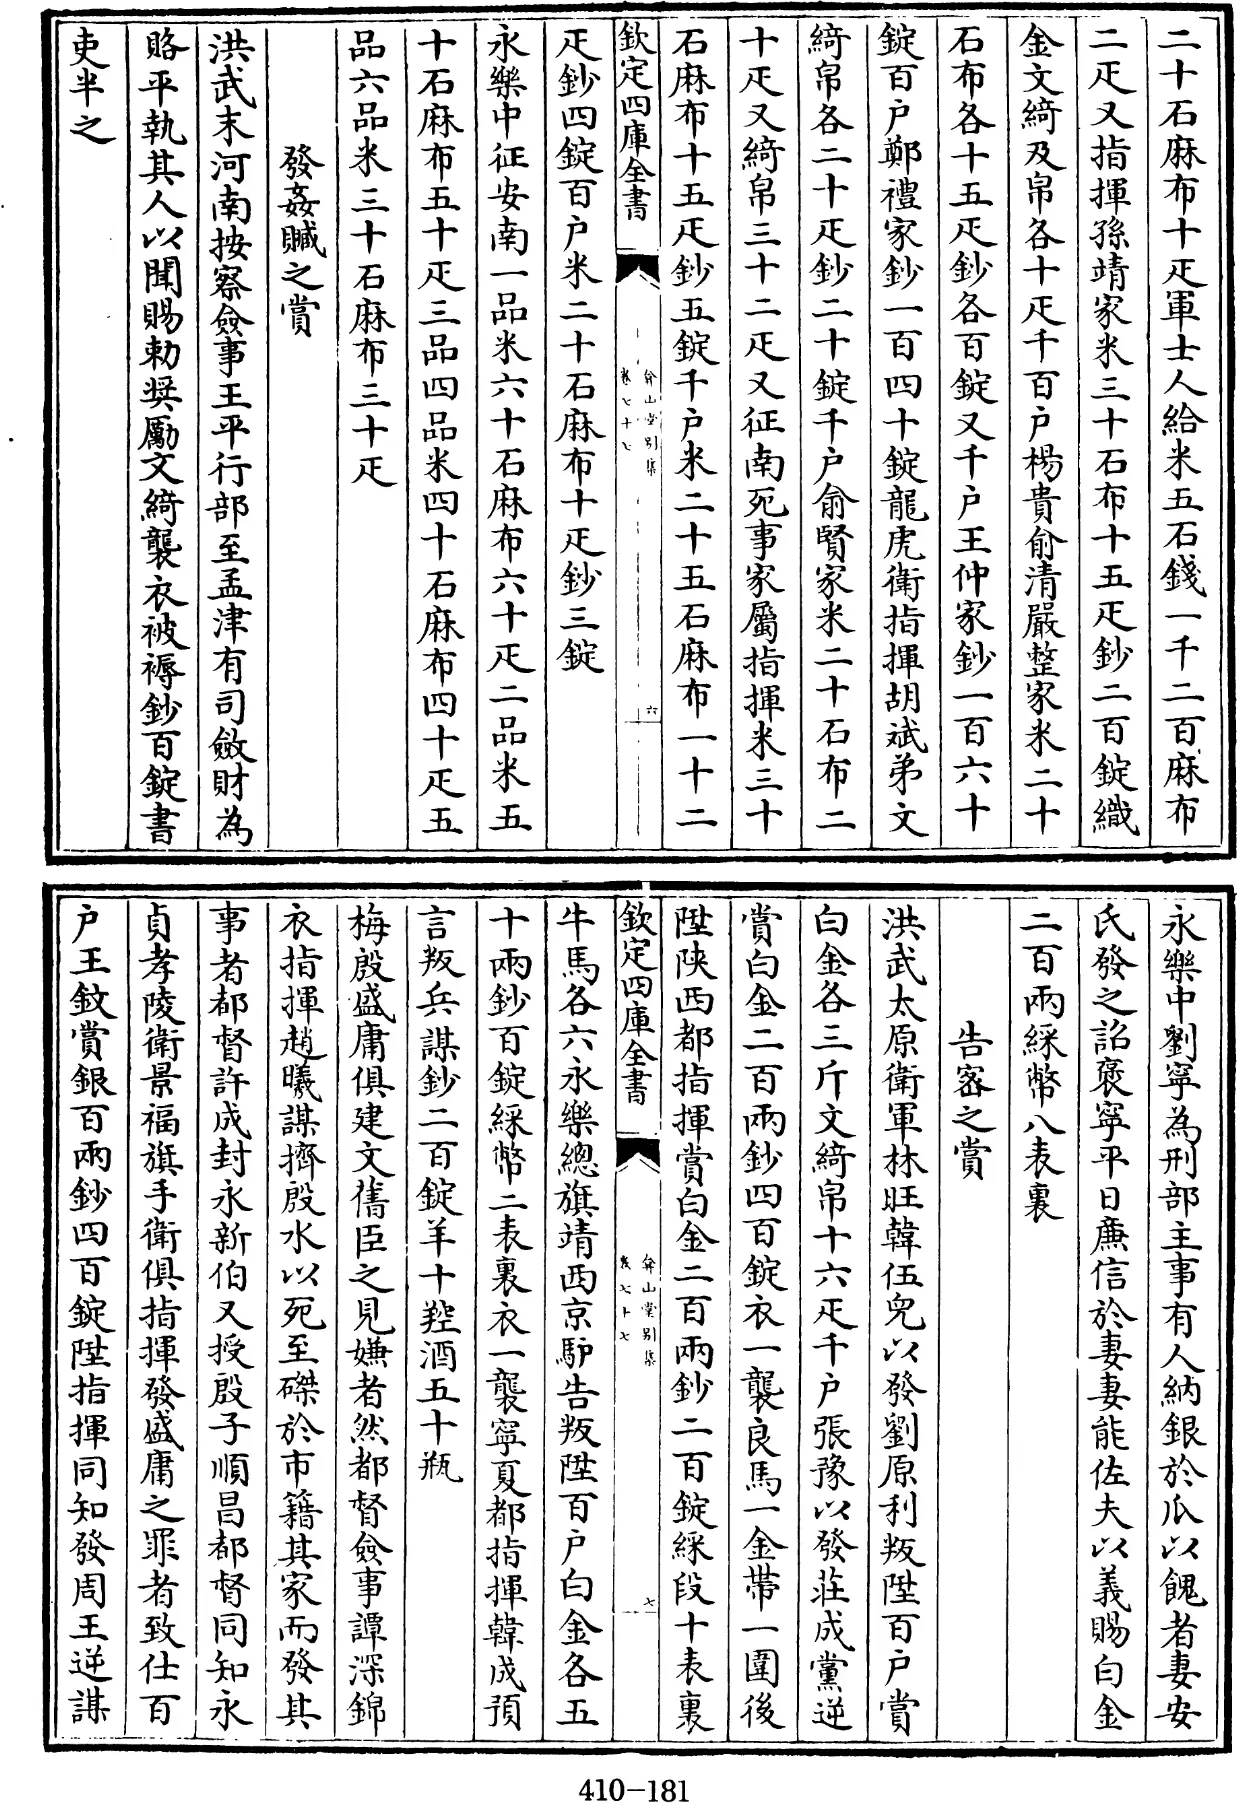 二十石麻布十疋軍士人給米五石錢一千二百麻布
二疋又指揮孫靖家米三十石布十五疋鈔二百錠織
金文綺及帛各十疋千百户楊貴俞清嚴整家米二十
石布各十五疋鈔各百錠又千户王仲家鈔一百六十
錠百户鄭禮家鈔一百四十錠龍虎衛指揮胡斌弟文
綺帛各二十疋鈔二十錠千户俞賢家米二十石布二
十疋又綺帛三十二疋又征南死事家屬指揮米三十
石麻布十五疋鈔五錠千户米二十五石麻布一十二
欽定四庫全書
弇山堂别集
卷七十七
六
疋鈔四錠百户米二十石麻布十疋鈔三錠
永樂中征安南一品米六十石麻布六十疋二品米五
十石麻布五十疋三品四品米四十石麻布四十疋五
品六品米三十石麻布三十疋
發姦贓之賞
洪武末河南按察僉事王平行部至孟津有司斂財為
賂平執其人以聞賜勅奨勵文綺襲衣被褥鈔百錠書
吏半之
永樂中劉寧為刑部主事有人納銀於瓜以餽者妻安
氏發之詔褒寧平日廉信於妻妻能佐夫以義賜白金
二百兩綵幣八表裏
告密之賞
洪武太原衛軍林旺韓伍兒以發劉原利叛陞百户賞
白金各三斤文綺帛十六疋千户張豫以發莊成黨逆
賞白金二百兩鈔四百錠衣一襲良馬一金帶一圍後
陞陕西都指揮賞白金二百兩鈔二百錠綵段十表裏
欽定四庫全書
弇山堂别集
卷七十七
七
牛馬各六永樂總旗靖西京馿告叛陞百户白金各五
十兩鈔百錠綵幣二表裏衣一襲寧夏都指揮韓成預
言叛兵謀鈔二百錠羊十羫酒五十瓶
梅殷盛庸俱建文舊臣之見嫌者然都督僉事譚深錦
衣指揮趙曦謀擠殷水以死至磔於市籍其家而發其
事者都督許成封永新伯又授殷子順昌都督同知永
貞孝陵衛景福旗手衛俱指揮發盛庸之罪者致仕百
户王欽賞銀百兩鈔四百錠陞指揮同知發周王逆謀
410-181